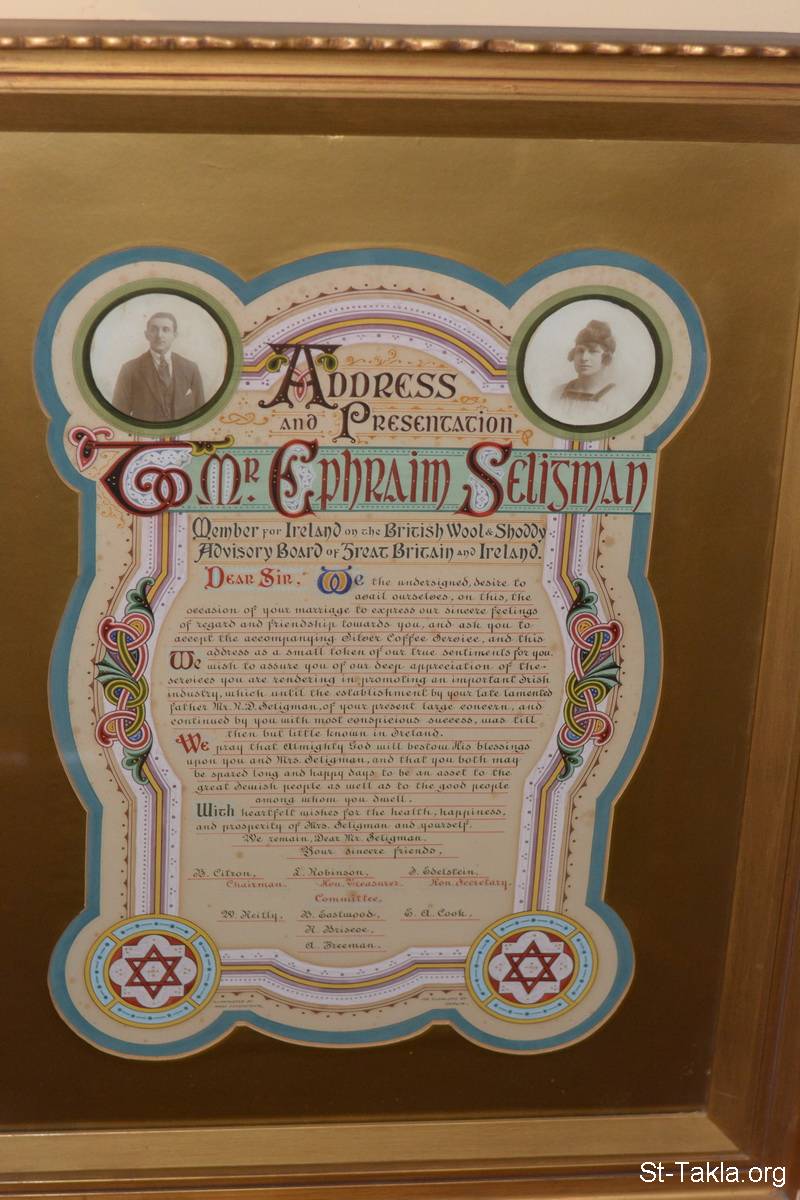 Address
and Presentation
To Mr. Ephraim Seligman
Member for Ireland on the British Wool & Shoddy
Advisory Board of Great Britain and Ireland.
Dear Sir, We the undersigned, desire to
avail ourselves, on this, the
occasion of your marriage to express our sincere feelings
of regard and friendship towards you, and ask you to
accept the accompanying Silver Coffee Service, and this
address as a small token of our true sentiments for you.
We wish to assure you of our deep appreciation of the
services you are rendering in promoting an important Irish
industry, which until the establishment by your late lamented
father Mr. N.D. Seligman, of your present large concern, and
continued by you with most conspicuous success, was till
then but little known in Ireland.
We pray that Almighty God will bestow His blessings
upon you and Mrs. Seligman, and that you both may
be spared long and happy days to be an asset to the
great Jewish people as well as to the good people
among whom you dwell.
With heartfelt wishes for the health, happiness,
and prosperity of Mrs. Seligman and yourself.
We remain, Dear Mr. Seligman.
Your sincere friends,
B. Citron, L. Robinson, I. Edelstein,
Chairman. Hon. Treasurer. Hon. Secretary.
Committee,
W. Reilly, B. Eastwood, E. A. Cook,
R. Briscoe,
A. Freeman.
St-Takla.org